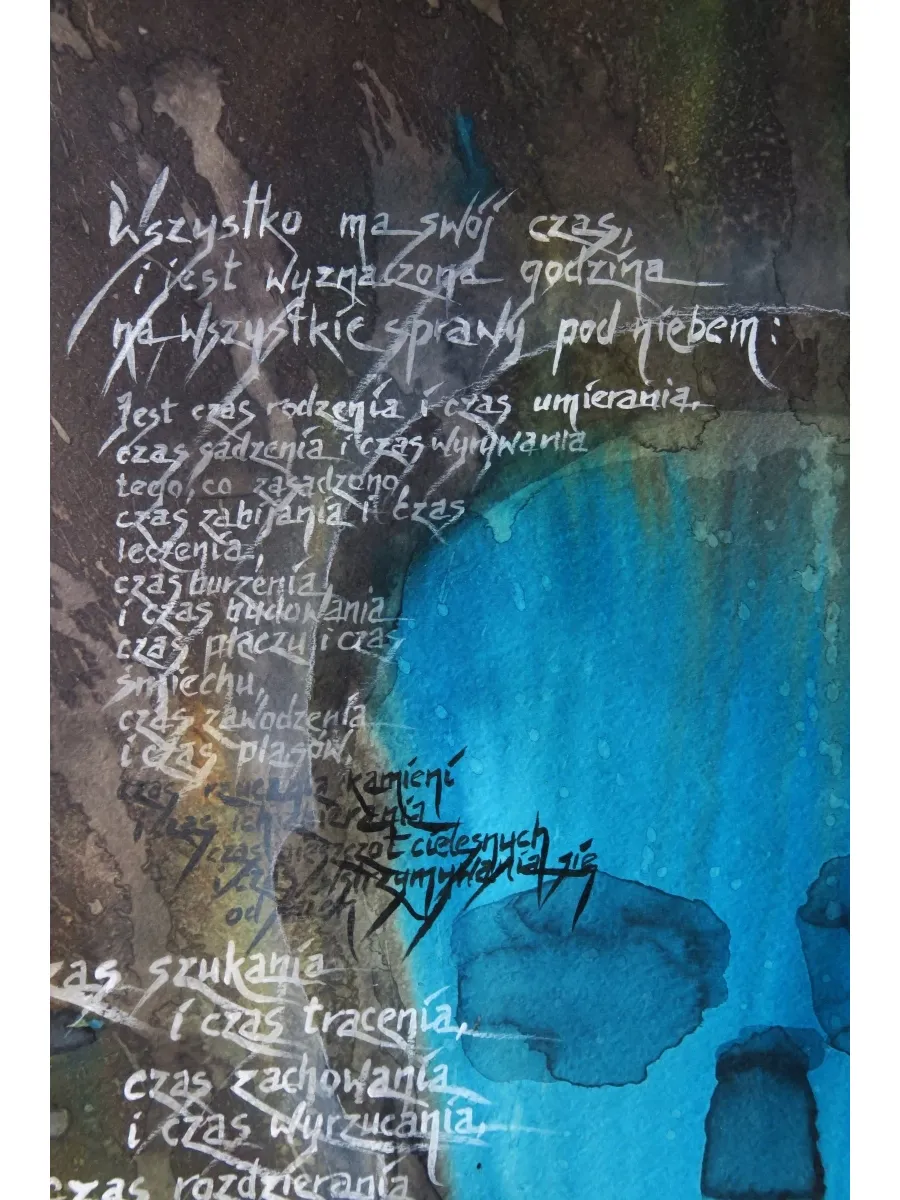 Wszystko ma swój czas,
i jest wyznaczona godzina
na wszystkie sprawy pod niebem:
Jest czas rodzenia i czas umierania,
czas sadzenia i czas wyrywania
tego, co zasadzono,
czas zabijania i czas
leczenia,
czas burzenia
i czas budowania
czas płaczu i czas
śmiechu,
czas zawodzenia
i czas pląsów,
czas rzucania kamieni
i czas ich zbierania
czas pieszczot cielesnych
i czas wstrzymywania się
od nich
czas szukania
i czas tracenia,
czas zachowania
i czas wyrzucania,
czas rozdzierania